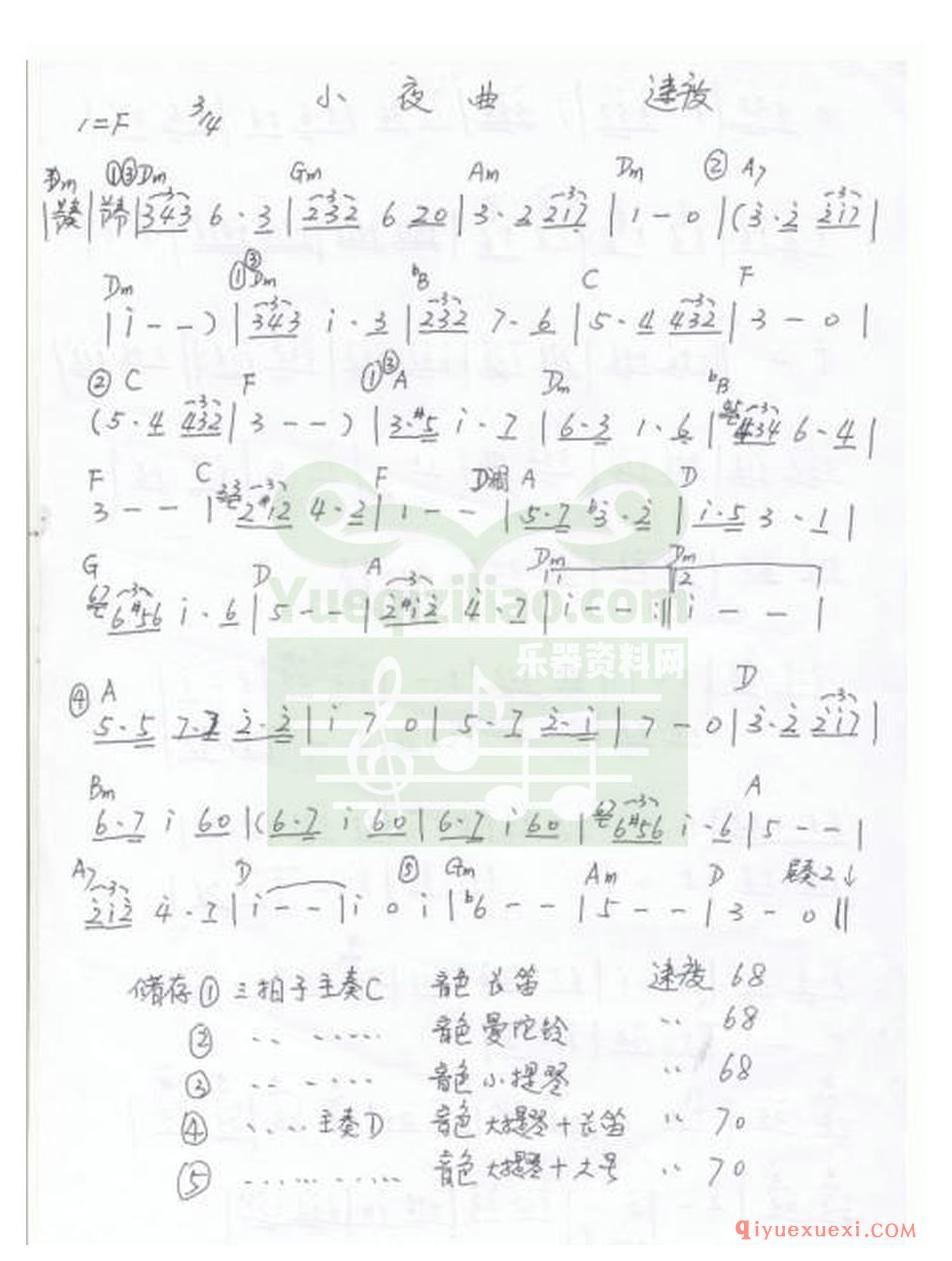 小夜曲 速度
1=F 3/4
Dm ①③Dm Gm Am Dm ② A7
|前奏|前奏|343 6·3|232 6 20|3·2 217|1-0|(3·2 217|
Dm ①③Dm bB C F
|i--)|343 i·3|232 7·6|5·4 432|3-0|
② C F ①③A Dm bB
(5·4 432|3--)|3·#5 i·7|6·3 1·6|434 6·4|
F C F D调 A D
3--|2#12 4·2|1--|5·7 b3·2|i·5 3·1|
G D A Dm Dm
67 6#56 i·6|5--|2#12 4·7|i--:||i--|
1 2
Yueqiziliao.com
乐器资料网
④ A D
5·5 7·7 2·2|i 7 0|5·7 2·i|7-0|3·2 217|
Bm A
6·7 i 60|(6·7 i 60|6·7 i 60|67 6#56 i·6|5--|
A7 D ⑤ Gm Am D 尾奏2↓
212 4·7|i--|i 0 i|b6--|5--|3-0||
储存① 三拍子主奏C 音色长笛 速度 68
② ·· ····· 音色曼陀铃 ·· 68
③ ·· ····· 音色小提琴 ·· 68
④ ····主奏D 音色大提琴+长笛 ·· 70
⑤ ·········· 音色大提琴+大号 ·· 70
qiyuexuexi.COM